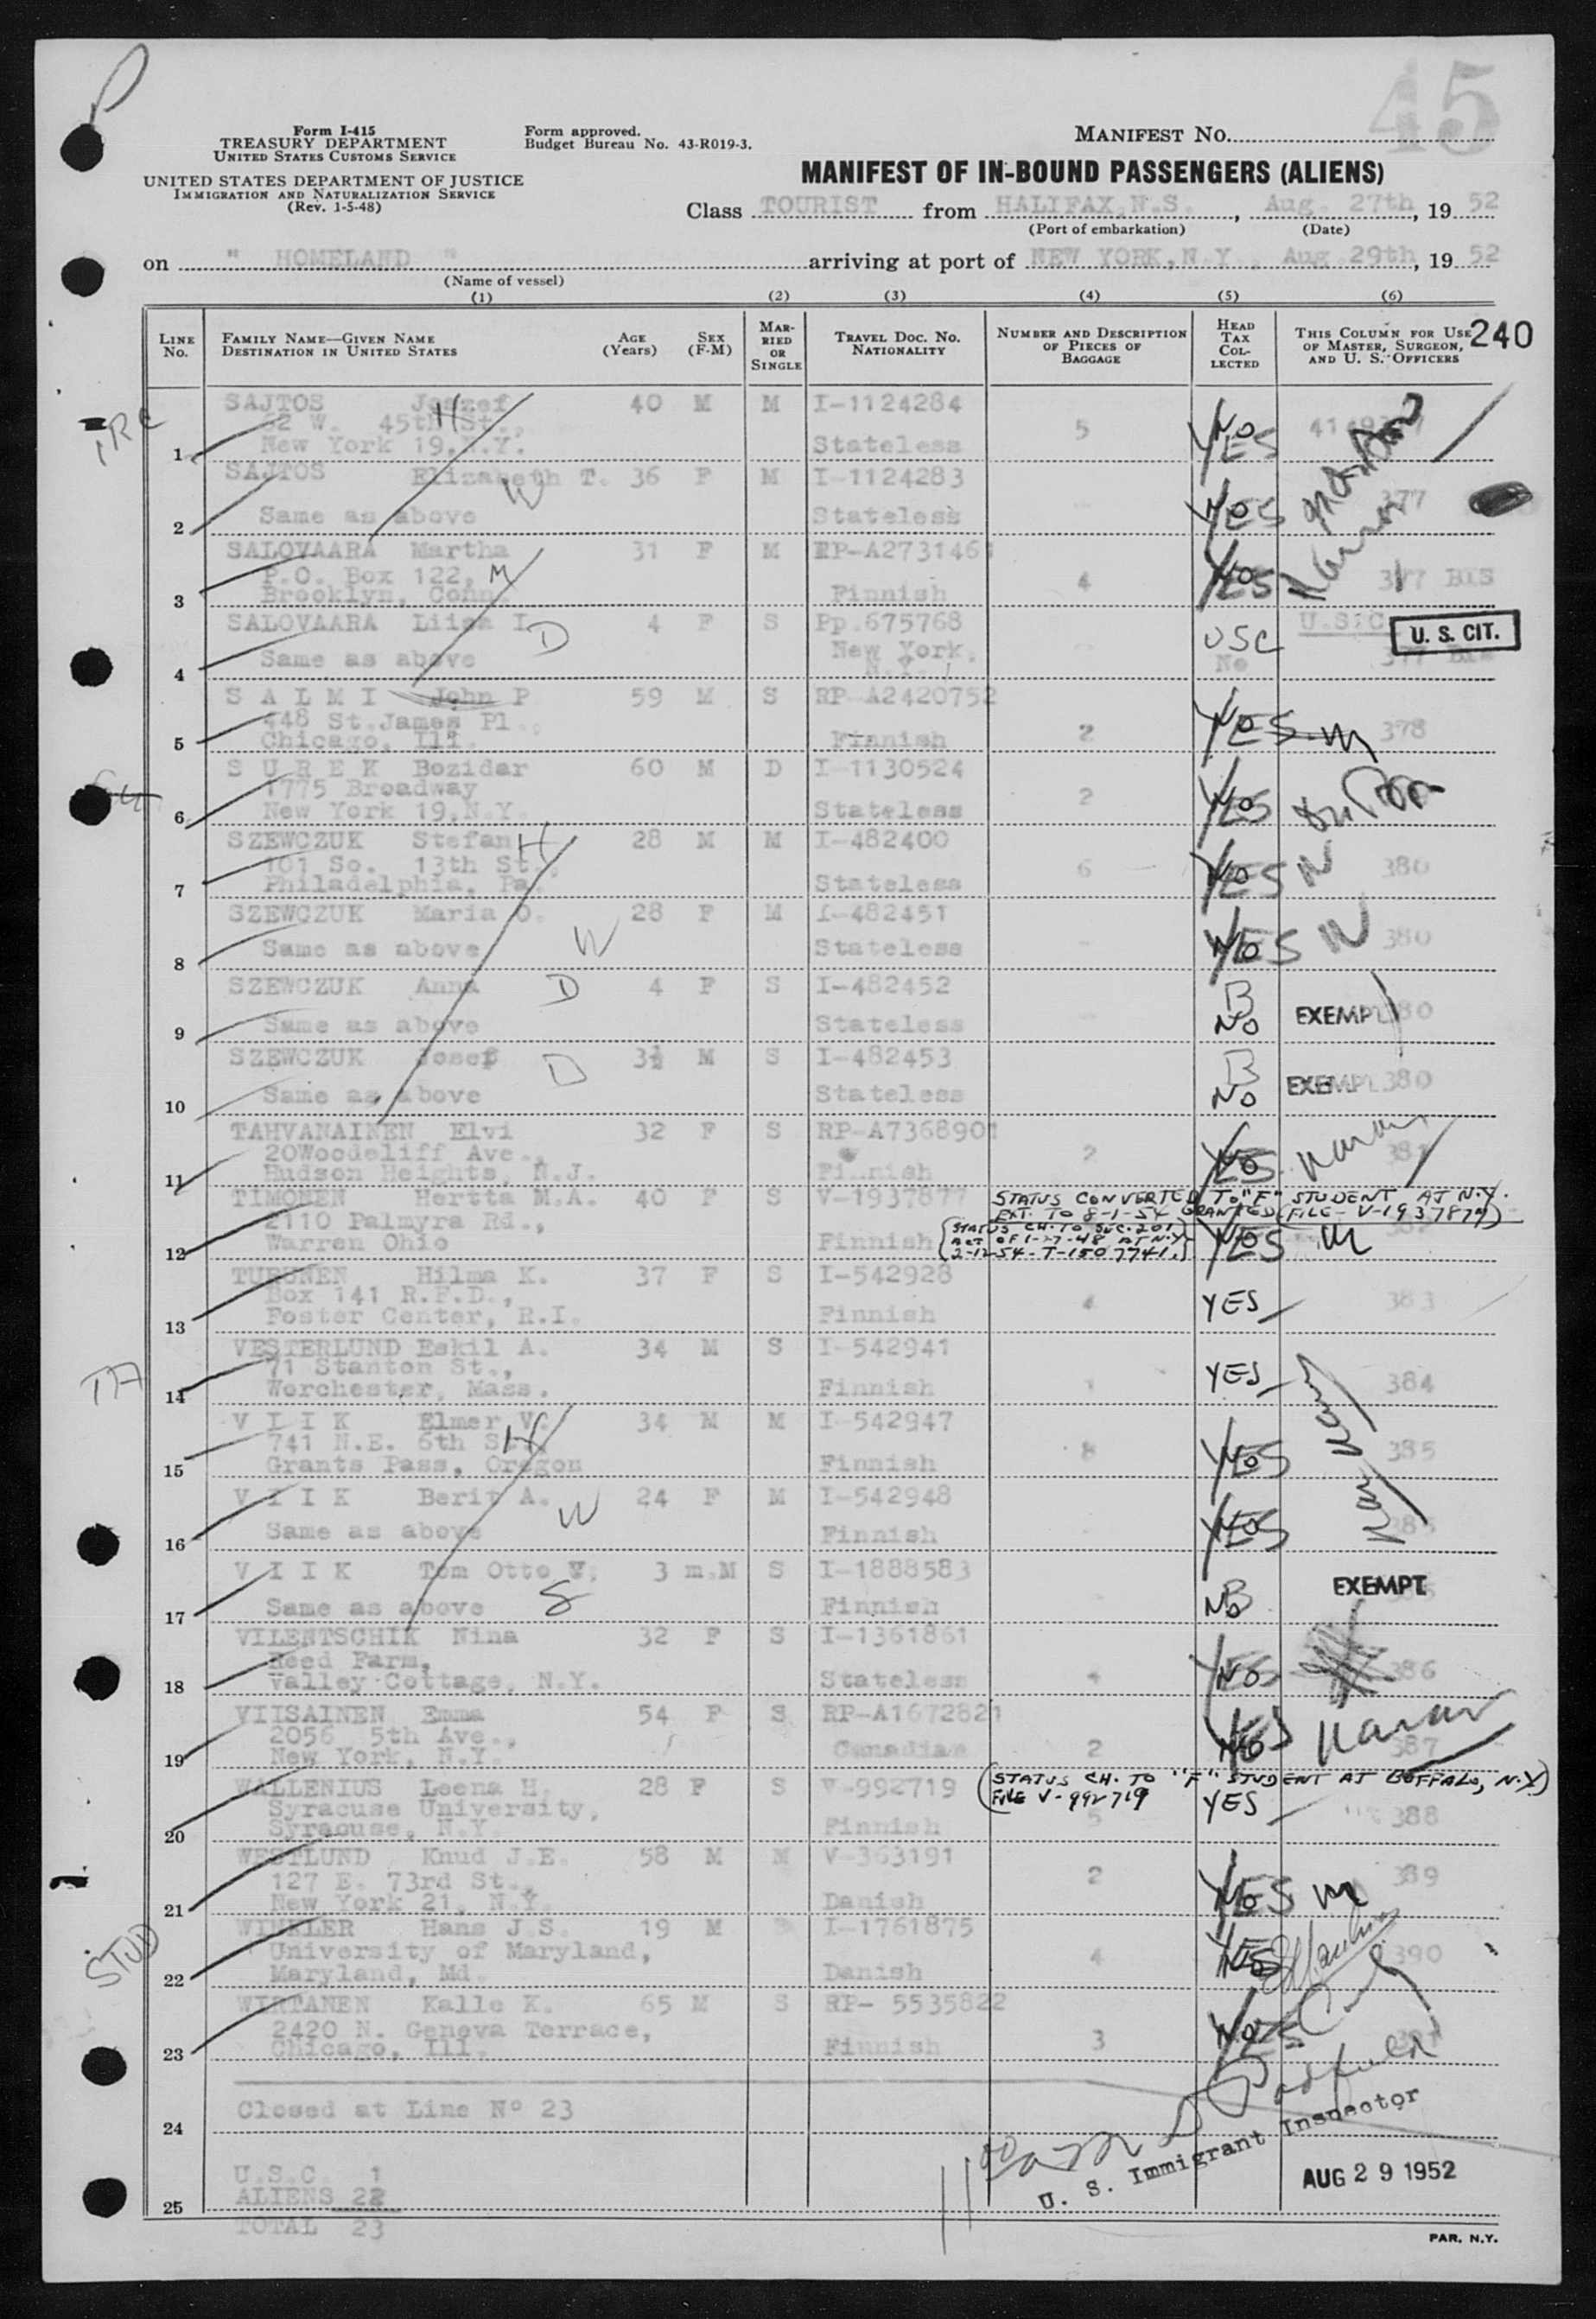 45
Form I-415
TREASURY DEPARTMENT
UNITED STATES CUSTOMS SERVICE
UNITED STATES DEPARTMENT OF JUSTICE
IMMIGRATION AND NATURALIZATION SERVICE
(Rev. 1-5-48)
Form approved.
Budget Bureau No. 43-R019-3.
MANIFEST NO.
MANIFEST OF IN-BOUND PASSENGERS (ALIENS)
Class TOURIST from HALIFAX,N.S., Aug. 27th, 19 52
(Port of embarkation) (Date)
on " HOMELAND " arriving at port of NEW YORK,N.Y., Aug.29th, 19 52
(Name of vessel)
(1) (2) (3) (4) (5) (6)
LINE No. FAMILY NAME—GIVEN NAME DESTINATION IN UNITED STATES AGE (Years) SEX (F-M) MARRIED OR SINGLE TRAVEL DOC. NO. NATIONALITY NUMBER AND DESCRIPTION OF PIECES OF BAGGAGE HEAD TAX COLLECTED THIS COLUMN FOR USE OF MASTER, SURGEON, AND U. S. OFFICERS 240
SAJTOS Joszef 40 M M I-1124284
62 W. 45th St., H 5 NO YES
1 New York 19,N.Y. Stateless
SAJTOS Elizabeth T. 36 F M I-1124283
W NO YES 377
2 Same as above Stateless
SALOVAARA Martha 31 F M RP-A2731461
P.O. Box 122, M 4 NO YES 377 BIS
3 Brooklyn, Conn. Finnish
SALOVAARA Liisa I. 4 F S Pp.675768 U.S.C.
D USC U. S. CIT.
4 Same as above New York, N.Y. No 377 BIS
S A L M I John P 59 M S RP-A2420752
448 St.James Pl., 2 NO YES M 378
5 Chicago, Ill. Finnish
S U R E K Bozidar 60 M D I-1130524
1775 Broadway 2 NO YES
6 New York 19,N.Y. Stateless
SZEWCZUK Stefan H 28 M M I-482400
101 So. 13th St., 6 NO YES 380
7 Philadelphia, Pa. Stateless
SZEWCZUK Maria O. 28 F M I-482451
W NO YES 380
8 Same as above Stateless
SZEWCZUK Anna D 4 F S I-482452
B NO EXEMPT 380
9 Same as above Stateless
SZEWCZUK Josef 3½ M S I-482453
D B NO EXEMPT 380
10 Same as above Stateless
TAHVANAINEN Elvi 32 F S RP-A7368901
20Woodcliff Ave., 2 NO YES 381
11 Hudson Heights, N.J. Finnish
TIMONEN Hertta M.A. 40 F S V-1937877 STATUS CONVERTED TO "F" STUDENT AT N.Y.
EXT. TO 8-1-54 GRANTED (FILE- V-1937877)
2110 Palmyra Rd., (STATUS CH. TO SEC. 201
ACT OF 1-27-48 AT N.Y.
12 Warren Ohio Finnish 2-12-54 - T-1507741.) NO YES M
TURUNEN Hilma K. 37 F S I-542928
Box 141 R.F.D., 4 YES 383
13 Foster Center, R.I. Finnish
VESTERLUND Eskil A. 34 M S I-542941
71 Stanton St., YES 384
14 Worchester, Mass. Finnish
V I I K Elmer V. 34 M M I-542947
741 N.E. 6th St. H 8 NO YES 385
15 Grants Pass, Oregon Finnish
V I I K Berit A. 24 F M I-542948
W NO YES 385
16 Same as above Finnish
V I I K Tom Otto V. 3 m.M S I-1888583
S NO B EXEMPT
17 Same as above Finnish
VILENTSCHIK Nina 32 F S I-1361861
Reed Farm, 4 NO YES 386
18 Valley Cottage, N.Y. Stateless
VIISAINEN Emma 54 F S RP-A1672821
2056 5th Ave., 2 NO YES 387
19 New York, N.Y. Canadian
WALLENIUS Leena H. 28 F S V-992719 (STATUS CH. TO "F" STUDENT AT BUFFALO, N.Y)
FILE V-992719
Syracuse University, 5 YES 388
20 Syracuse, N.Y. Finnish
WESTLUND Knud J.E. 58 M M V-363191
127 E. 73rd St., 2 NO YES M 389
21 New York 21, N.Y. Danish
WINKLER Hans J.S. 19 M I-1761875
University of Maryland, 4 YES 390
22 Maryland, Md. Danish
WIRTANEN Kalle K. 65 M S RP- 5535822
2420 N. Geneva Terrace, 3 NO YES
23 Chicago, Ill. Finnish
24 Closed at Line Nº 23
U. S. Immigrant Inspector
U.S.C. 1
25 ALIENS 22 AUG 29 1952
TOTAL 23
PAR. N.Y.
STUD